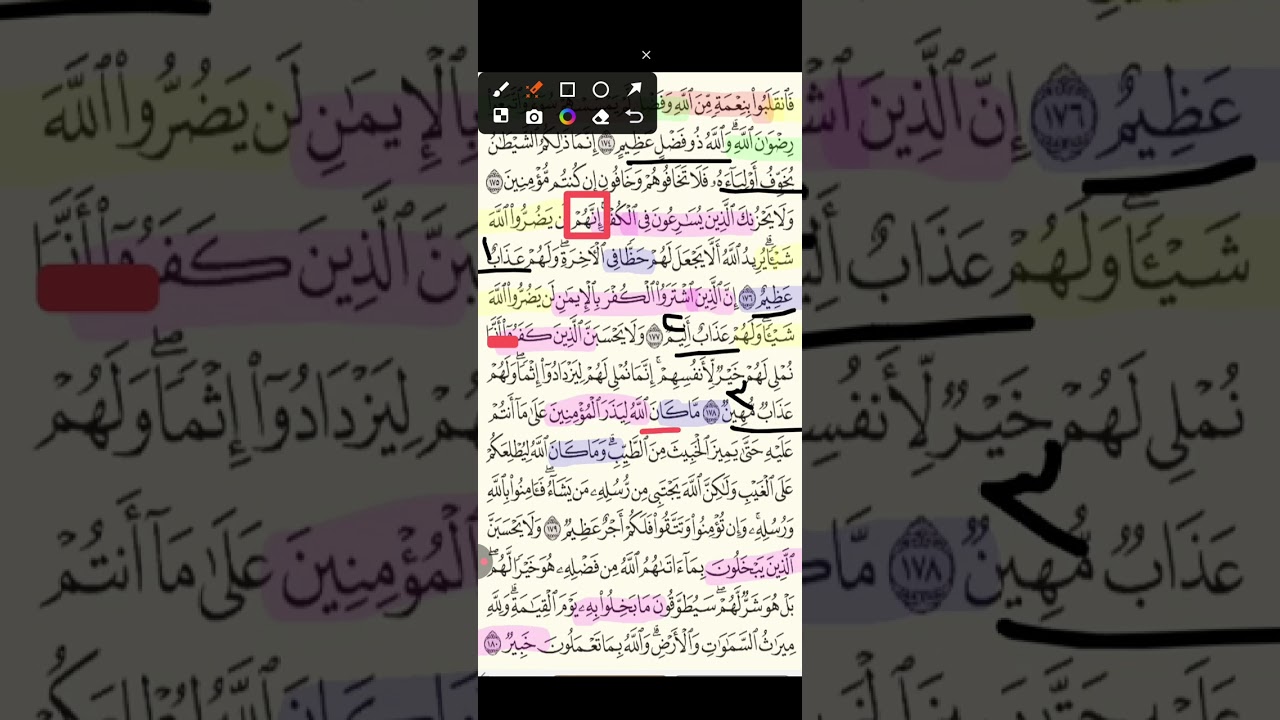 فَٱنقَلَبُوا۟ بِنِعْمَةٍ مِّنَ ٱللَّهِ
رِضْوَٰنَ ٱللَّهِ ۗ وَٱللَّهُ ذُو فَضْلٍ عَظِيمٍ ١٧٤ إِنَّمَا ذَٰلِكُمُ ٱلشَّيْطَٰنُ
يُخَوِّفُ أَوْلِيَآءَهُۥ فَلَا تَخَافُوهُمْ وَخَافُونِ إِن كُنتُم مُّؤْمِنِينَ ١٧٥
وَلَا يَحْزُنكَ ٱلَّذِينَ يُسَٰرِعُونَ فِى ٱلْكُفْرِ ۚ إِنَّهُمْ لَن يَضُرُّوا۟ ٱللَّهَ
شَيْـًٔا ۗ يُرِيدُ ٱللَّهُ أَلَّا يَجْعَلَ لَهُمْ حَظًّا فِى ٱلْـَٔاخِرَةِ ۖ وَلَهُمْ عَذَابٌ
عَظِيمٌ ١٧٦ إِنَّ ٱلَّذِينَ ٱشْتَرَوُا۟ ٱلْكُفْرَ بِٱلْإِيمَٰنِ لَن يَضُرُّوا۟ ٱللَّهَ
شَيْـًٔا ۖ وَلَهُمْ عَذَابٌ أَلِيمٌ ١٧٧ وَلَا يَحْسَبَنَّ ٱلَّذِينَ كَفَرُوٓا۟ أَنَّمَا
نُمْلِى لَهُمْ خَيْرٌ لِّأَنفُسِهِمْ ۚ إِنَّمَا نُمْلِى لَهُمْ لِيَزْدَادُوٓا۟ إِثْمًا ۚ وَلَهُمْ
عَذَابٌ مُّهِينٌ ١٧٨ مَّا كَانَ ٱللَّهُ لِيَذَرَ ٱلْمُؤْمِنِينَ عَلَىٰ مَآ أَنتُمْ
عَلَيْهِ حَتَّىٰ يَمِيزَ ٱلْخَبِيثَ مِنَ ٱلطَّيِّبِ ۗ وَمَا كَانَ ٱللَّهُ لِيُطْلِعَكُمْ
عَلَى ٱلْغَيْبِ وَلَٰكِنَّ ٱللَّهَ يَجْتَبِى مِن رُّسُلِهِۦ مَن يَشَآءُ ۖ فَـَٔامِنُوا۟ بِٱللَّهِ
وَرُسُلِهِۦ ۚ وَإِن تُؤْمِنُوا۟ وَتَتَّقُوا۟ فَلَكُمْ أَجْرٌ عَظِيمٌ ١٧٩ وَلَا يَحْسَبَنَّ
ٱلَّذِينَ يَبْخَلُونَ بِمَآ ءَاتَىٰهُمُ ٱللَّهُ مِن فَضْلِهِۦ هُوَ خَيْرًا لَّهُم
بَلْ هُوَ شَرٌّ لَّهُمْ ۖ سَيُطَوَّقُونَ مَا بَخِلُوا۟ بِهِۦ يَوْمَ ٱلْقِيَٰمَةِ ۗ وَلِلَّهِ
مِيرَٰثُ ٱلسَّمَٰوَٰتِ وَٱلْأَرْضِ ۗ وَٱللَّهُ بِمَا تَعْمَلُونَ خَبِيرٌ ١٨٠